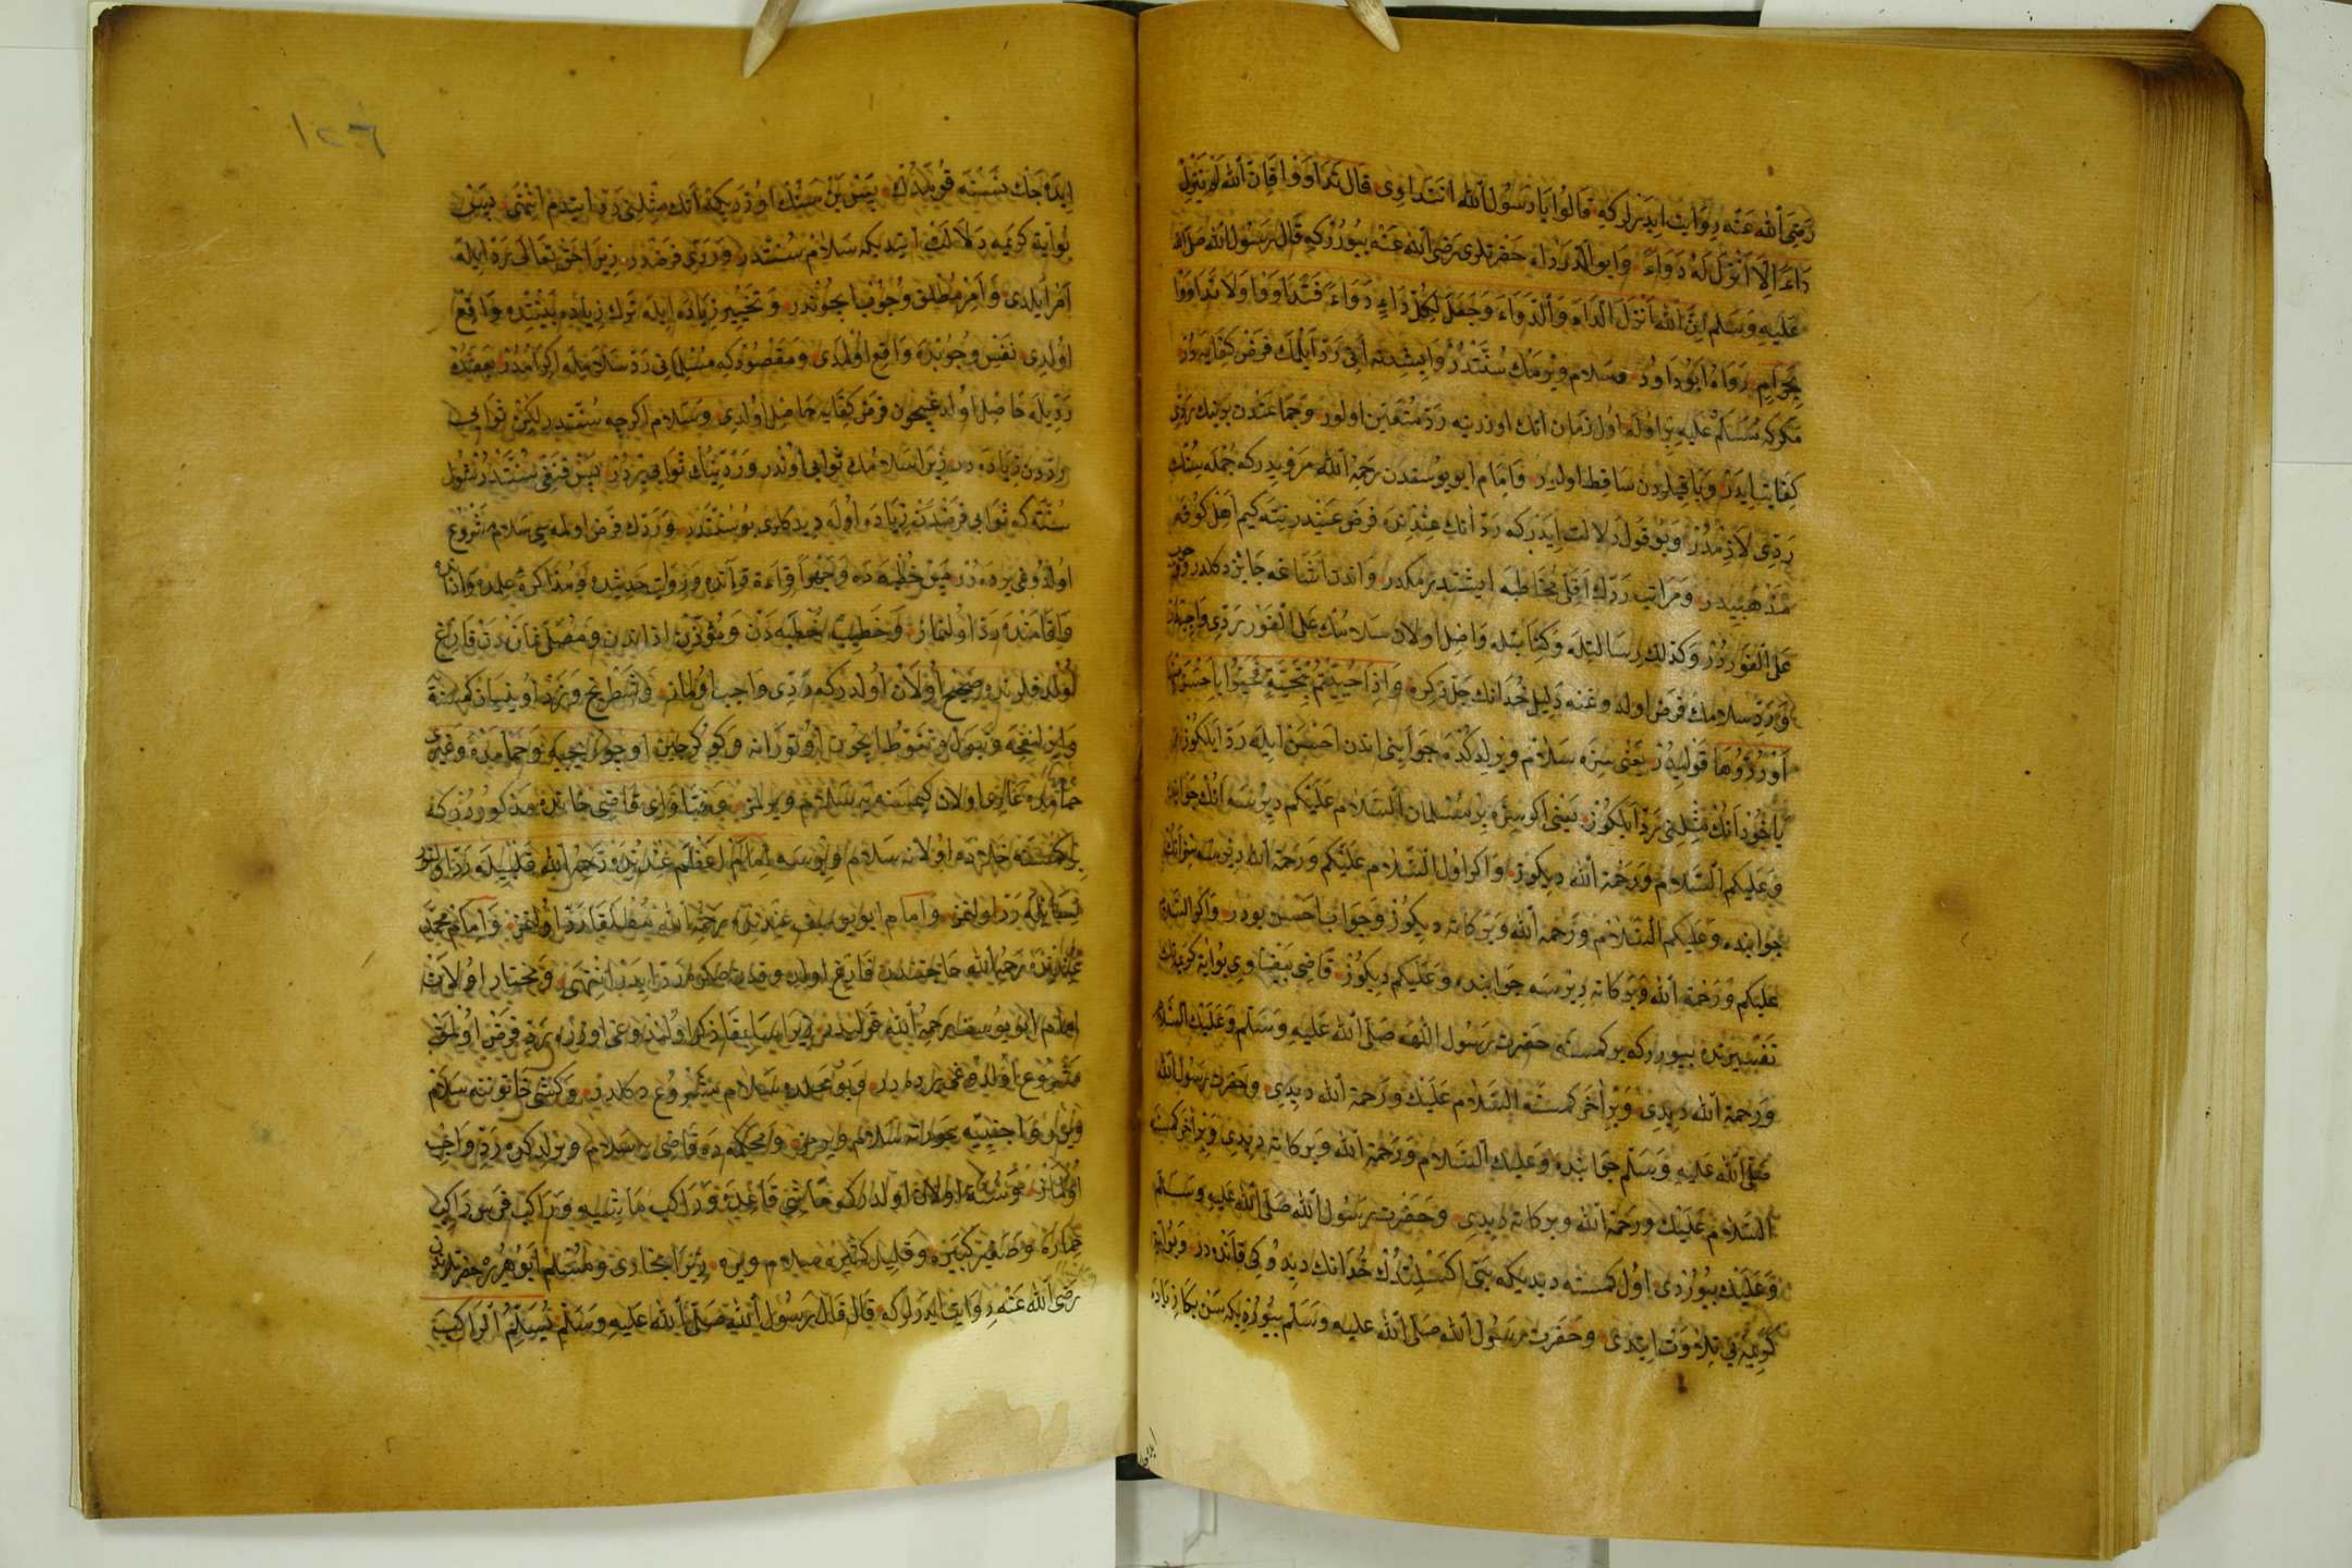 رضى الله عنه روايت ايدرلر كه قالوا يا رسول الله انتداوى قال تداووا فان الله لم ينزل
داء الا انزل له دواء وابو الدرداء حضرتلرى رضى الله عنه بيورركه قال رسول الله صلى الله
عليه وسلم ان الله انزل الداء والدواء وجعل لكل داء دواء فتداووا ولا تداووا
بحرام رواه ابو داود وسلام ويرمك سنتدر وايشدنه انى رد ايلمك فرض كفايه در
مكركه مسلم عليه بر اوله اول زمان انك اوزرينه رد متعين اولور وجماعتدن برينك ردى
كفايت ايدر وباقيلردن ساقط اولور وامام ابو يوسفدن رحمة الله مرويدركه جمله سنك
ردى لازمدر وبو قول دلالت ايدركه رد انك عندنده فرض عيندر نته كيم اهل كوفه
مذهبيدر ومراتب ردك اقلى مخاطبه ايشتدرمكدر واندن اشاغه جائز دكلدر
على الفوردر وكذلك رسالتله وكتابتله واصل اولان سلامك على الفور ردى واجبدر
ورد سلامك فرض اولدوغنه دليل خدانك جل ذكره واذا حييتم بتحية فحيوا باحسن منها
او ردوها قوليدر يعنى سزه سلام ويرلدكده جوابينى اندن احسن ايله رد ايلكوز
ياخود انك مثلنى رد ايلكوز يعنى اكر سزه بر مسلمان السلام عليكم ديرسه انك جوابنده
وعليكم السلام ورحمة الله ديكوز واكر اول السلام عليكم ورحمة الله ديرسه سز انك
جوابنده وعليكم السلام ورحمة الله وبركاته ديكوز وجواب احسن بودر واكر السلام
عليكم ورحمة الله وبركاته ديرسه جوابنده وعليكم ديكوز قاضى بيضاوى بو آية كريمه نك
تفسيرنده بيورركه بر كمسنه حضرت رسول اللهه صلى الله عليه وسلم وعليك السلام
ورحمة الله ديدى وبر آخر كمسنه السلام عليك ورحمة الله ديدى وحضرت رسول الله
صلى الله عليه وسلم جوابنده وعليك السلام ورحمة الله وبركاته ديدى وبر آخر كمسنه
السلام عليك ورحمة الله وبركاته ديدى وحضرت رسول الله صلى الله عليه وسلم
وعليك بيوردى اول كمسنه ديديكه بنى اكسلتدك خدانك ديدوكى قانده در وبو آية
كريمه يى تلاوت ايتدى وحضرت رسول الله صلى الله عليه وسلم بيورديكه سن بكا زياده
١٢٦
ايده جك نسنه قومدك پس بن سنك اوزريكه انك مثلنى رد ايتدم انتهى پس
بو آية كريمه دلالت ايتديكه سلام سنتدر وردى فرضدر زيرا حق تعالى رد ايله
امر ايلدى وامر مطلق وجوب ايچوندر وتخيير زياده ايله ترك زياده بيننده واقع
اولدى نفس وجوبنده واقع اولمدى ومقصودكه مسلمانى رد سلام ايله اكرامدر بعضنك
رديله حاصل اولدغيچون فرض كفايه حاصل اولدى وسلام اكرچه سنتدر لكن ثوابى
ردون زياده در زيرا سلامك ثوابى اوندر وردينك ثوابى بردر پس قنقى سنتدر شول
سنته كه ثوابى فرضدن زياده اوله ديدكلرى بو سنتدر وردك فرض اولمه سى سلام مشروع
اولدوغى يرده در پس خطبه ده وجهرا قراءة قرآنده وروايت حديثده ومذاكره علمده واذان
واقامتده رد اولنماز وخطيب خطبه دن ومؤذن اذاندن ومصلى نمازدن فارغ
اولدقلرنده صحيح اولان اولدركه ردى واجب اولماز وشطرنج ونرد اوينيان كمسنه
حمامده عارى اولان كيمسنه يه سلام ويرلمز وفتاواى قاضى خانده مذكوردركه
بر كمسنه خلاده اولانه سلام ويرسه امام اعظم عندنده رحمه الله قلبيله رد اولنور
لسانيله رد اولنمز وامام ابو يوسف عندنده رحمه الله مطلقا رد اولنمز وامام محمد
عندنده رحمه الله حاجتندن فارغ اولدوقدنصكره رد ايدر انتهى ومختار اولان
امام ابو يوسف رحمه الله قوليدر زيرا سابقا ذكر اولندوغى اوزره رد فرض اولمق
مشروع اولدوغى يرده در وبو محلده سلام مشروع دكلدر وكشى خاتوننه سلام
ويرر واجنبيه عورته سلام ويرمز ومحكمه ده قاضى يه سلام ويرلدكده ردى واجب
اولماز وسنت اولان اولدركه ماشى قاعده وراكب ماشيه وراكب فرس راكب
حماره وصغير كبيره وقليل كثيره سلام ويره زيرا بخارى ومسلم ابو هريره حضرتلرندن
رضى الله عنه روايت ايدرلركه قال قال رسول الله صلى الله عليه وسلم يسلم الراكب